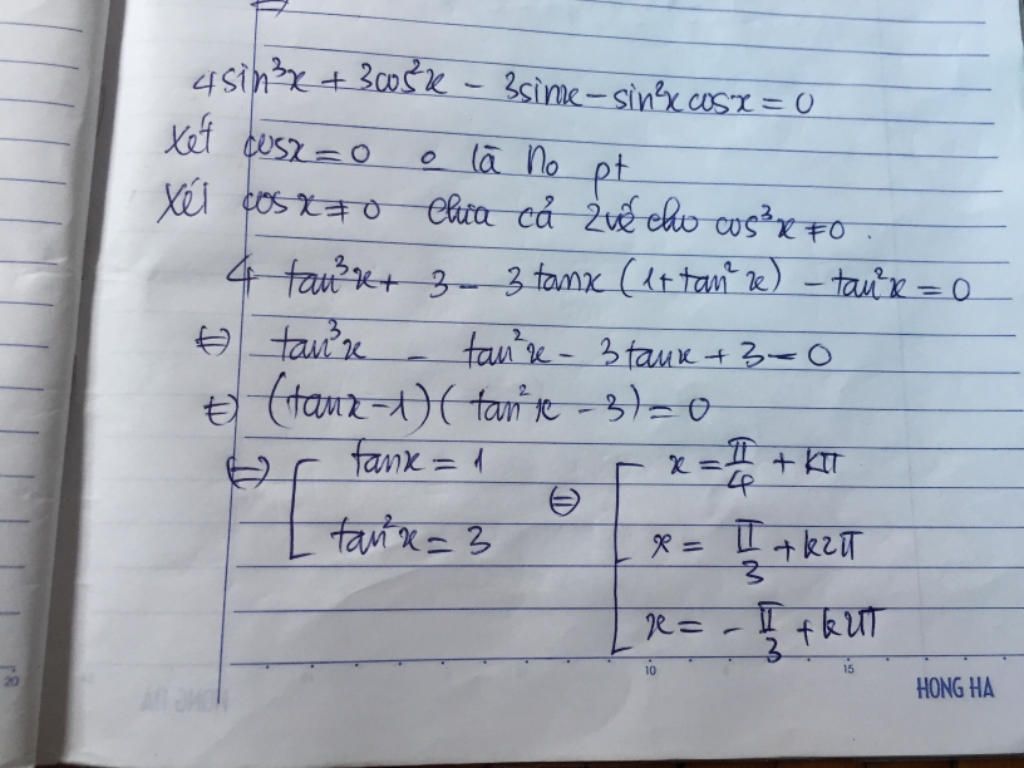 4sin³x + 3cos²x - 3sinx - sin²x cosx = 0
Xét cosx = 0 o là No pt
Xét cosx ≠ 0 chia cả 2 vế cho cos³x ≠ 0.
4 tan³x + 3 - 3tanx (1 + tan²x) - tan²x = 0
⇔ tan³x - tan²x - 3tanx + 3 = 0
⇔ (tanx - 1)(tan²x - 3) = 0
⇔ [ tanx = 1 ⇔ [ x = π/4 + kπ
tan²x = 3 x = π/3 + k2π
x = -π/3 + k2π
20
10 15
HONG HA